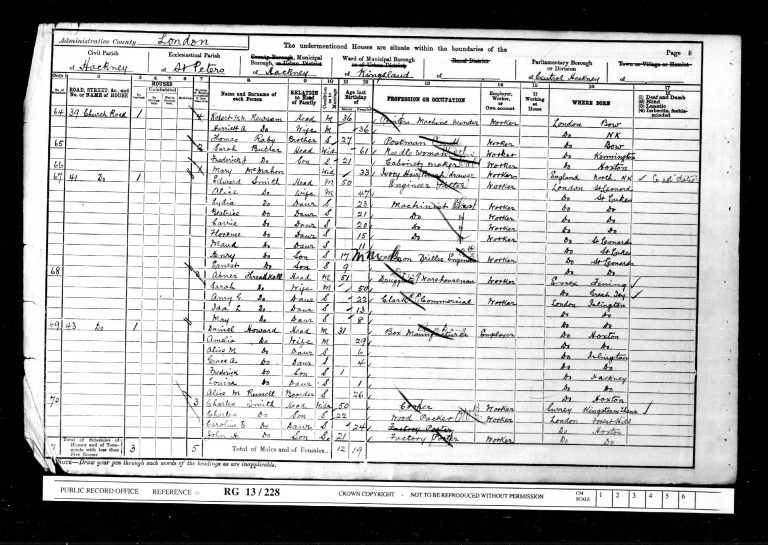 Administrative County London
The undermentioned Houses are situate within the boundaries of the
Page 8
Civil Parish
of Hackney
Ecclesiastical Parish
of St Peters
County Borough, Municipal Borough, or Urban District
of Hackney
Ward of Municipal Borough or of Urban District
of Kingsland
Rural District
of
Parliamentary Borough or Division
of Central Hackney
Town or Village or Hamlet
of
ROAD, STREET, &c., and No. or NAME of HOUSE
HOUSES
Name and Surname of each Person
RELATION to Head of Family
Age last Birthday of
PROFESSION OR OCCUPATION
Employer, Worker, or Own account
If Working at Home
WHERE BORN
(1) Deaf and Dumb
(2) Blind
(3) Lunatic
(4) Imbecile, feeble-minded
64 39 Church Road 1 4 Newsam Head M 36 Machine Minder Worker London Bow
Harriett A Do Wife M 36 Do NK
Thomas Raby S 27 Postman Worker Do Bow
65 Sarah Butler Head Wid 61 Needlewoman Worker Do Kennington
Frederick J Do Son S 21 Cabinet maker Worker Do Hoxton
66 Mary McMahon Wid 33 Brush drawer Worker England North NK
67 41 Do 1 Edward Smith Head M 50 Engineer Fitter Worker London St Leonard
Alice Do Wife M 47 Do St Lukes
Lydia Do Daur S 23 Machinist Worker Do Do
Beatrice Do Daur S 21 Do Worker Do Do
Carrie Do Daur S 20 Do Worker Do Do
Florence Do Daur S 15 Do Worker Do St Leonards
Maud Do Daur S 11 Do St Lukes
Henry Do Son S 17 Driller Worker Do St Leonards
Ernest Do Son S 9 Do Do
68 Abner Threadkell Head M 51 Warehouseman Worker Essex
Sarah Do Wife M 50 Do
Amy E Do Daur S 22 Clerk Commercial Worker London Islington
Ida L Do Daur S 13 Do Do
May Do Daur S 8 Do Do
69 43 Do 1 Daniel Howard Head M 31 Box Manufacturer Employer Do Hoxton
Amelia Do Wife M 29 Do Do
Alice M Do Daur S 6 Do Islington
Grace A Do Daur S 4 Do Do
Frederick Do Son S 1 Do Hackney
Louisa Do Daur S 1 Do Do
Alice M Russell Boarder S 26 Do Hoxton
70 3 Charles Smith Head Widr 50 Worker Surrey
Charles Do Son S 22 Wood Packer Worker London Forest Hill
Caroline E Do Daur S 24 Factory Porter Do Hoxton
John H Do Son S 21 Factory Porter Worker Do Do
7 Total of Schedules of Houses and of Tenements with less than Five Rooms 3 5 Total of Males and of Females... 12 19
NOTE—Draw your pen through such words of the headings as are inapplicable.
PUBLIC RECORD OFFICE REFERENCE :- RG 13/228 CROWN COPYRIGHT - NOT TO BE REPRODUCED WITHOUT PERMISSION CM SCALE 1 2 3 4 5 6